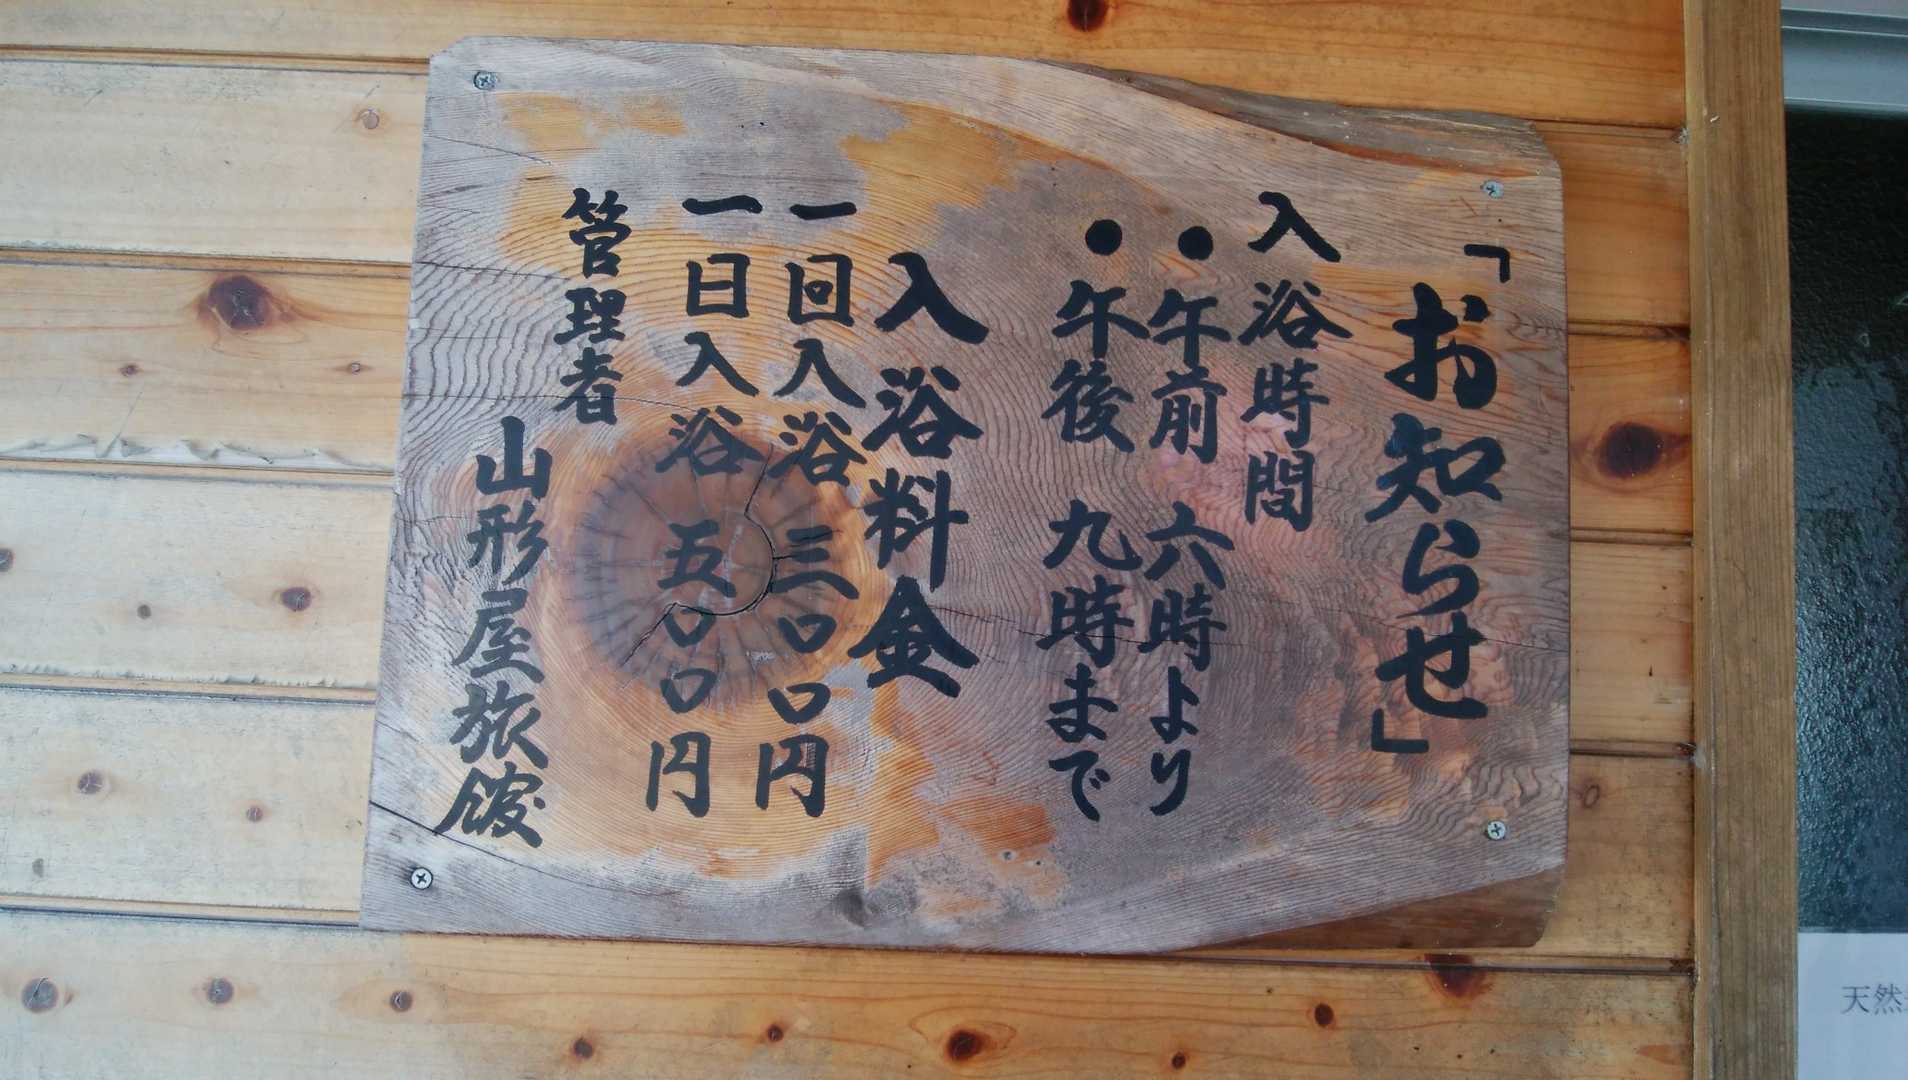 「お知らせ」
入浴時間
●午前 六時より
●午後 九時まで
入浴料金
一回入浴 三〇〇円
一日入浴 五〇〇円
管理者
山形屋旅館
天然